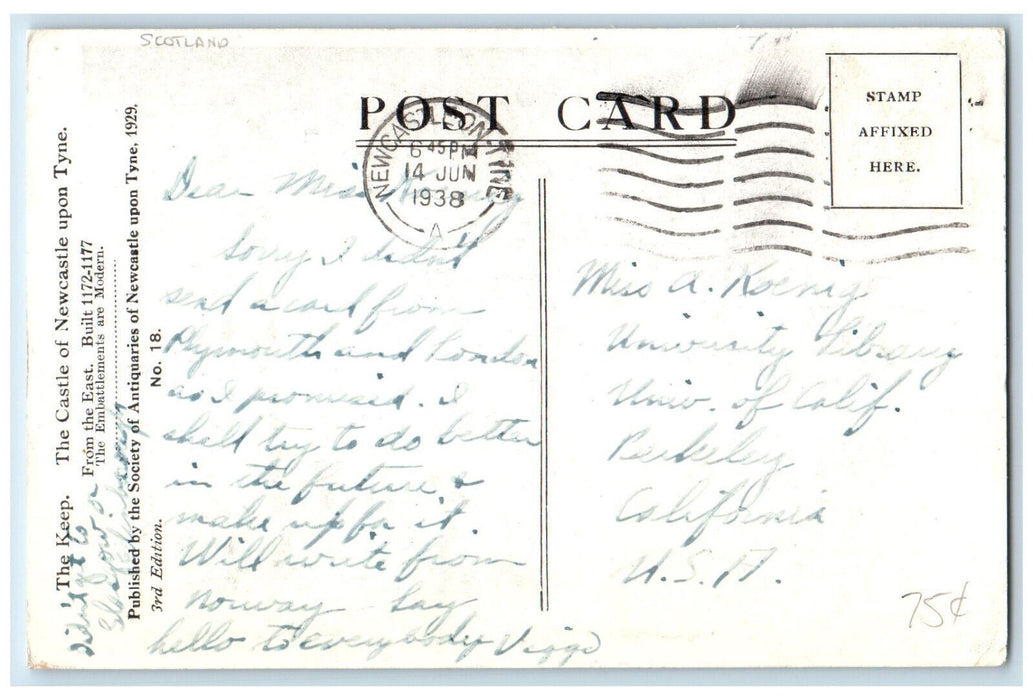 SCOTLAND
POST CARD
STAMP
AFFIXED
HERE.
NEWCASTLE-ON-TYNE
6 45 PM
14 JUN
1938
A
The Keep. The Castle of Newcastle upon Tyne.
From the East. Built 1172-1177
The Embattlements are Modern.
Published by the Society of Antiquaries of Newcastle upon Tyne, 1929.
3rd Edition. No. 18.
Dear Miss
Sorry I didn't
send a card from
Plymouth and London
as I promised. I
shall try to do better
in the future &
make up for it.
Will write from
Norway Say
hello to everybody Viggo
Didn't get to
Glasgow or
Miss A. Koenig
University Library
Univ. of Calif.
Berkeley
California
U.S.A.
75¢